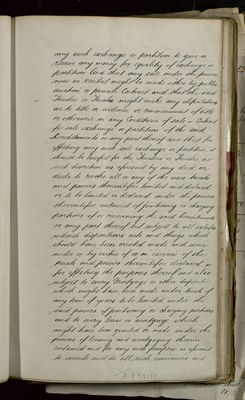 any such exchange or partition to give or
receive any money for equality of exchange or
partition And that any sale under the power
now in recital might be made either by public
auction or private Contract and that the said
Trustees or Trustee might make any stipulations
as to title or evidence or commencement of title
or otherwise in any Conditions of sale or Contract
for sale exchange or partition of the said
hereditaments or any part thereof and that for
effecting any such sale exchange or partition it
should be lawful for the Trustees or Trustee as
such direction as aforesaid by any deed or
deeds to revoke all or any of the uses trusts
and powers thereinbefore limited and declared
or to be limited or declared under the powers
thereinbefore contained of jointuring or charging
portions of or concerning the said hereditaments
or any part thereof but subject to all
dispositions acts and things which
should have been created made and done
under or by virtue of or in exercise of the
trusts and powers thereinbefore declared
for effecting the purposes thereof and also
subject to every Mortgage or other disposition
which might have been made under trusts of
any term of years to be limited under the
said powers of jointuring or charging portions
and to every lease or mortgage which
might have been granted or made under the
powers of leasing and mortgaging therein
contained and for any such purpose as aforesaid
to execute and do all such assurances and